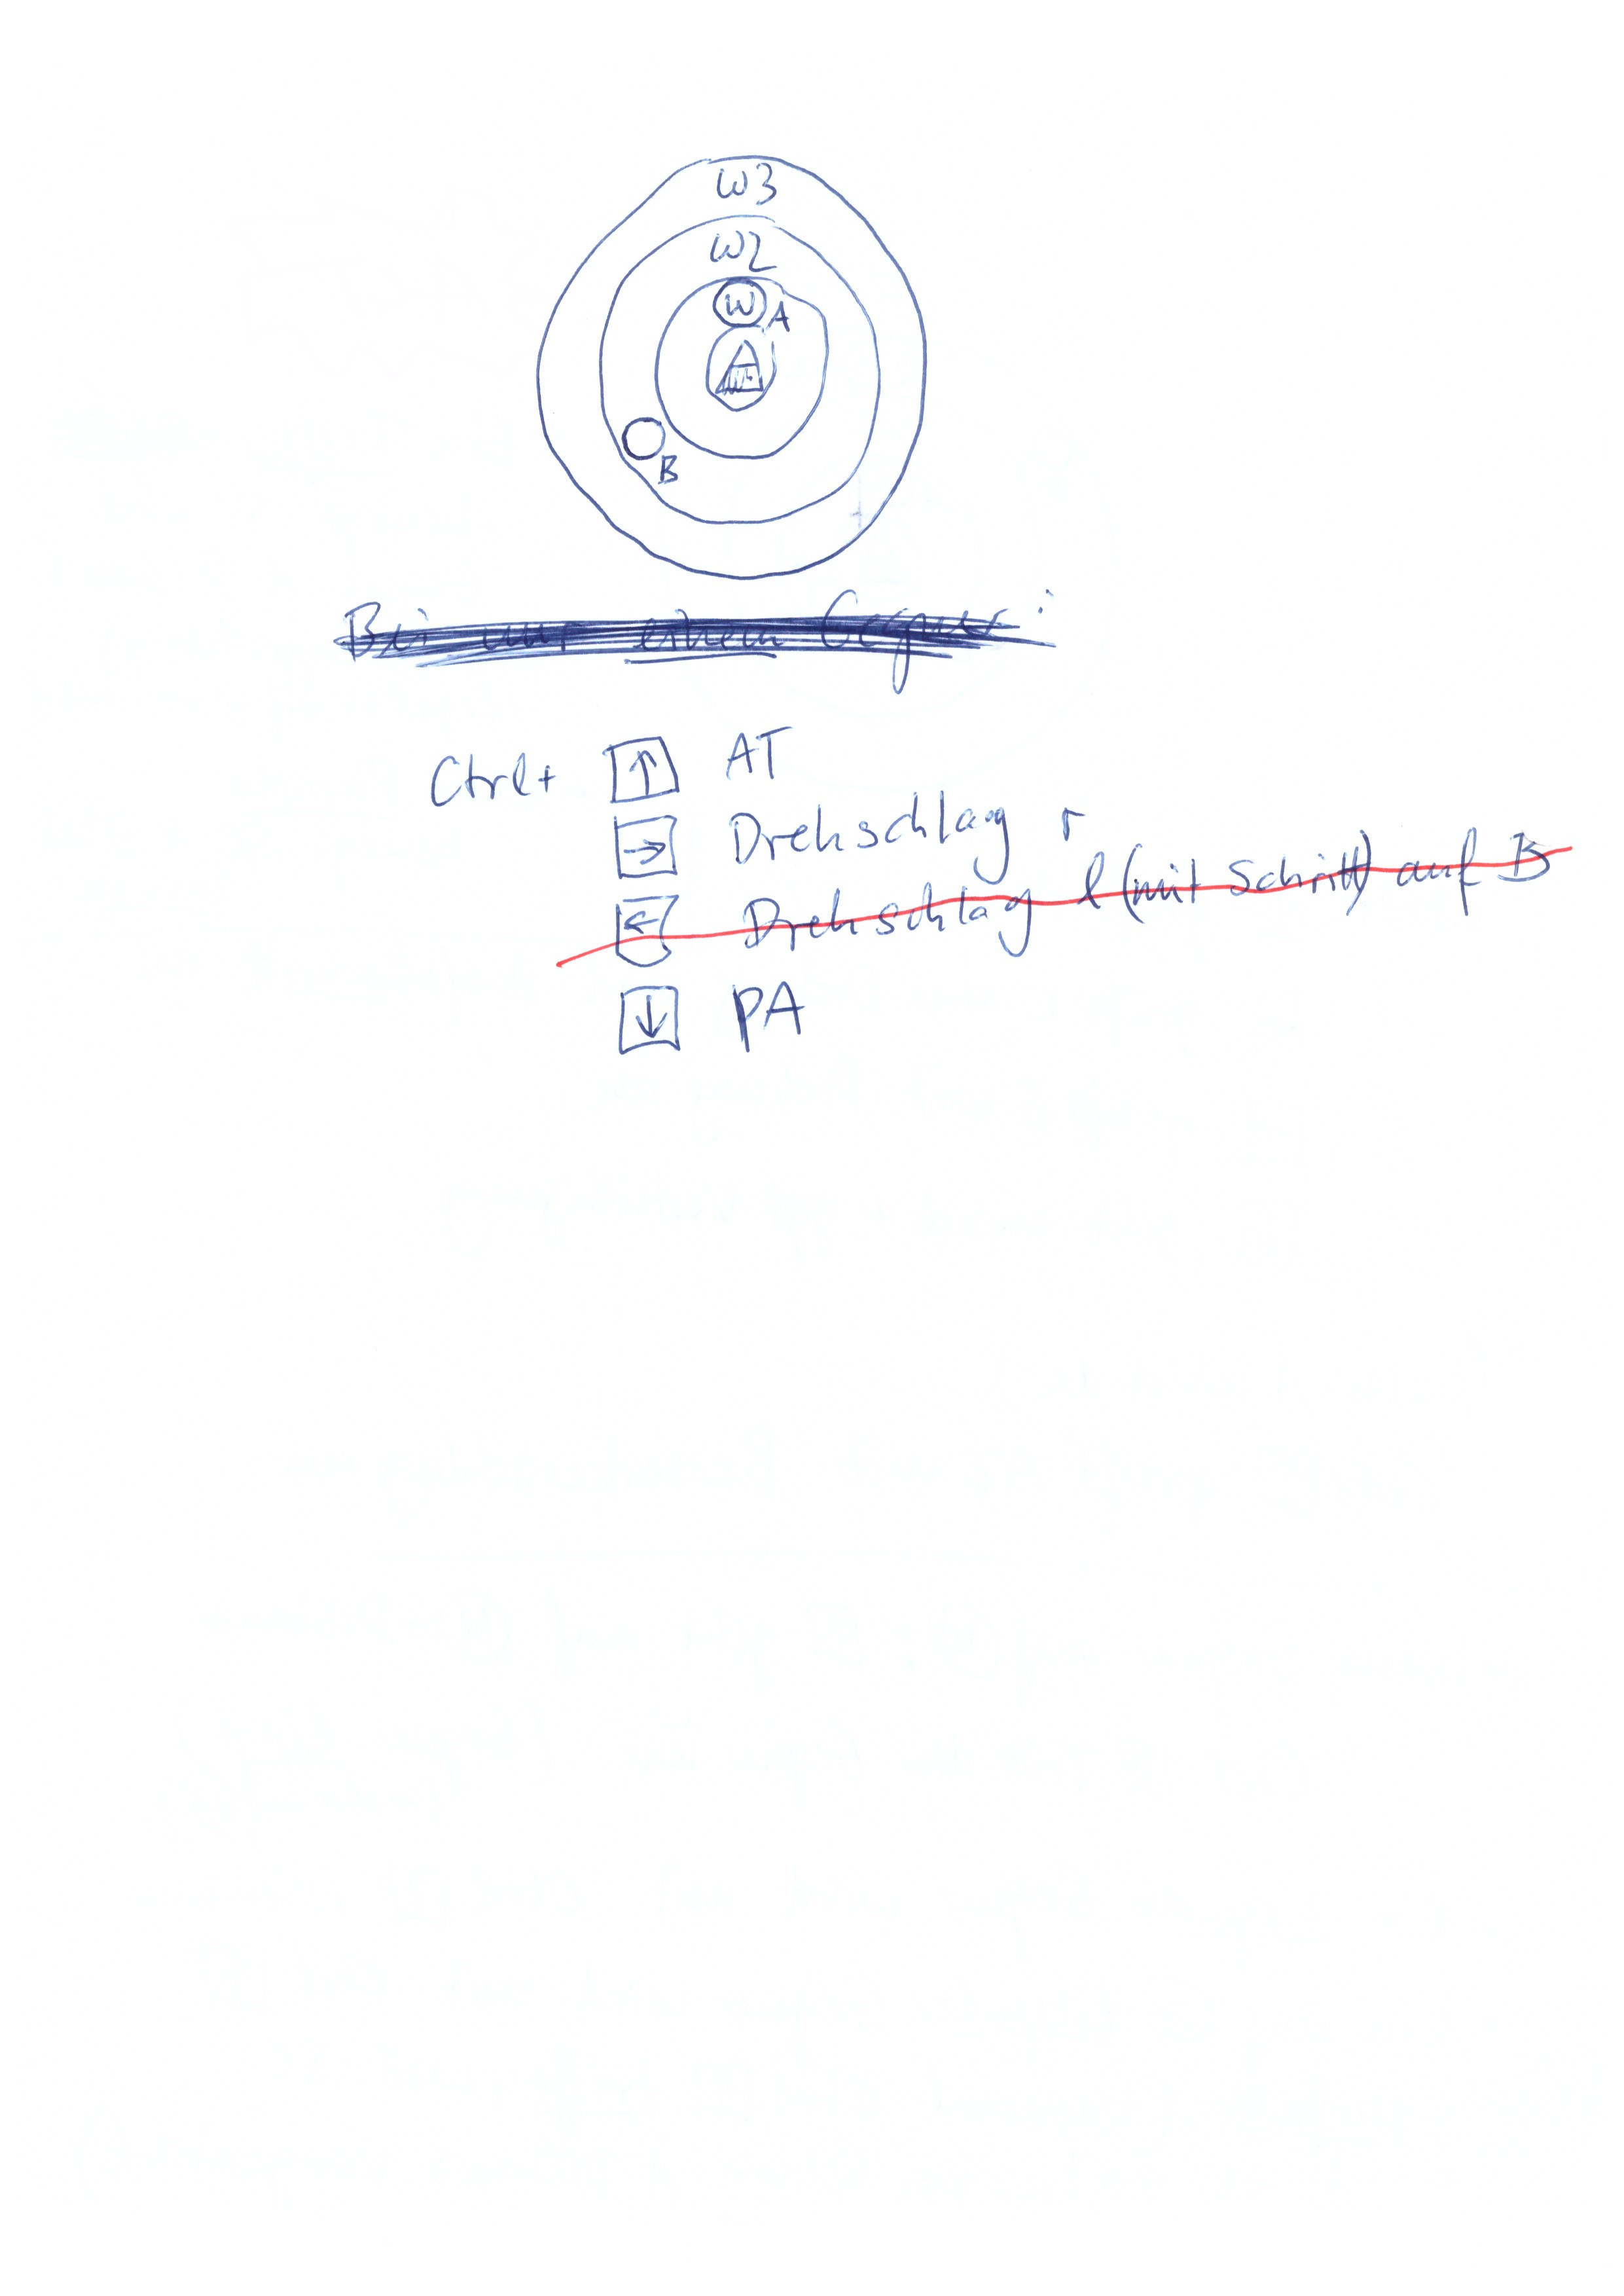 W3
W2
W A
B
Bei nur einem Gegner:
Ctrl+ ↑ AT
→ Drehschlag r
← Drehschlag l (mit Schritt) auf B
↓ PA